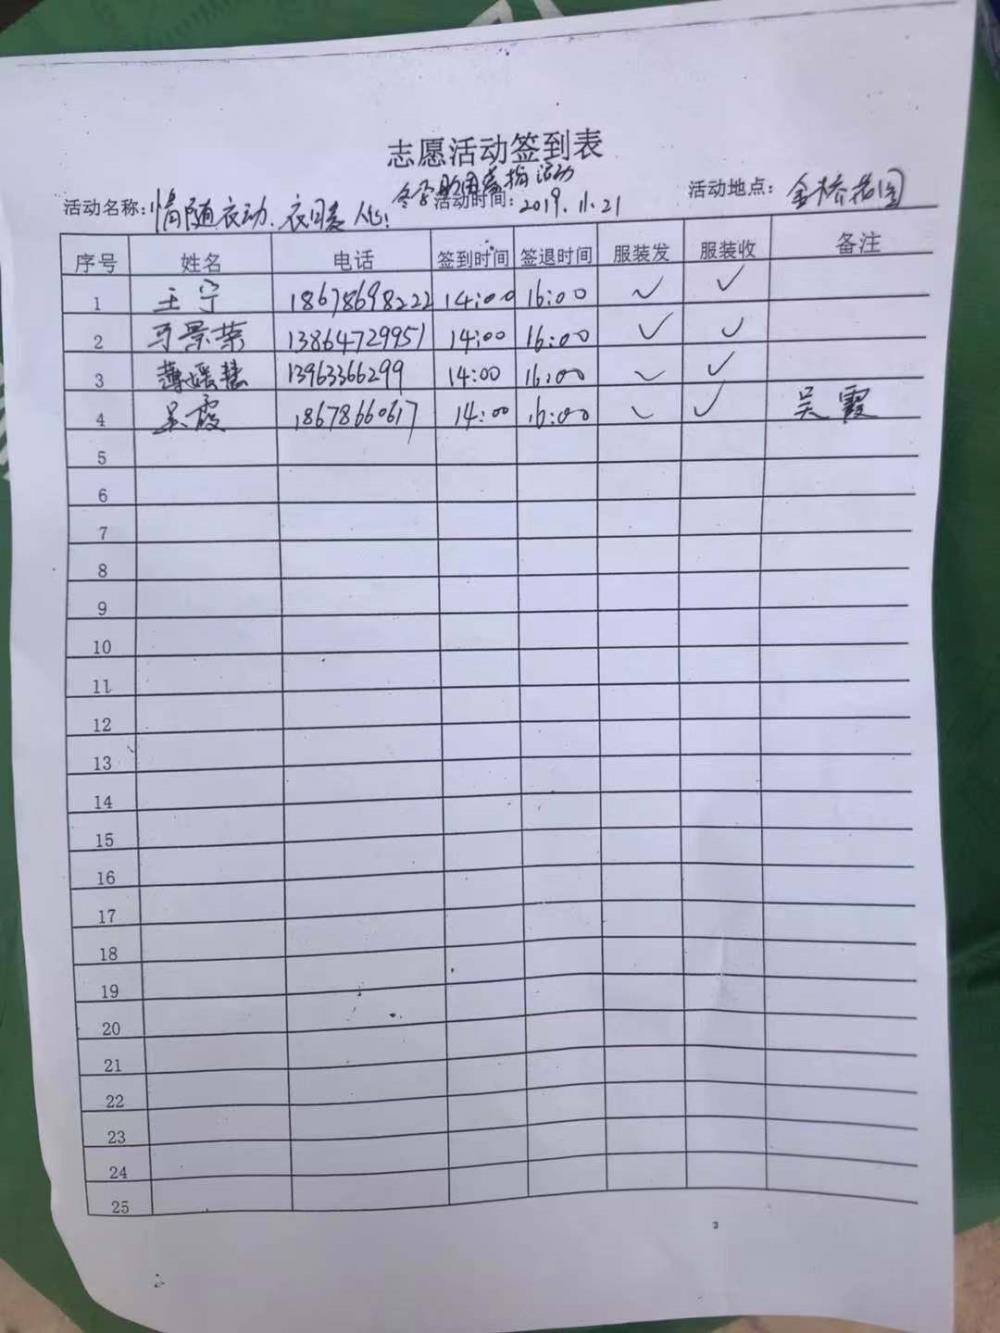 志愿活动签到表
冬季助困善捐活动
活动名称:情随衣动、衣同暖人心! 活动时间:2019.11.21 活动地点:金桥花园
序号 姓名 电话 签到时间 签退时间 服装发 服装收 备注
1 王宁 18678698222 14:00 16:00 ✓ ✓
2 马景荣 13864729951 14:00 16:00 ✓ ✓
3 薄媛慧 13963366299 14:00 16:00 ✓ ✓
4 吴霞 18678660617 14:00 16:00 ✓ ✓ 吴霞
5
6
7
8
9
10
11
12
13
14
15
16
17
18
19
20
21
22
23
24
25